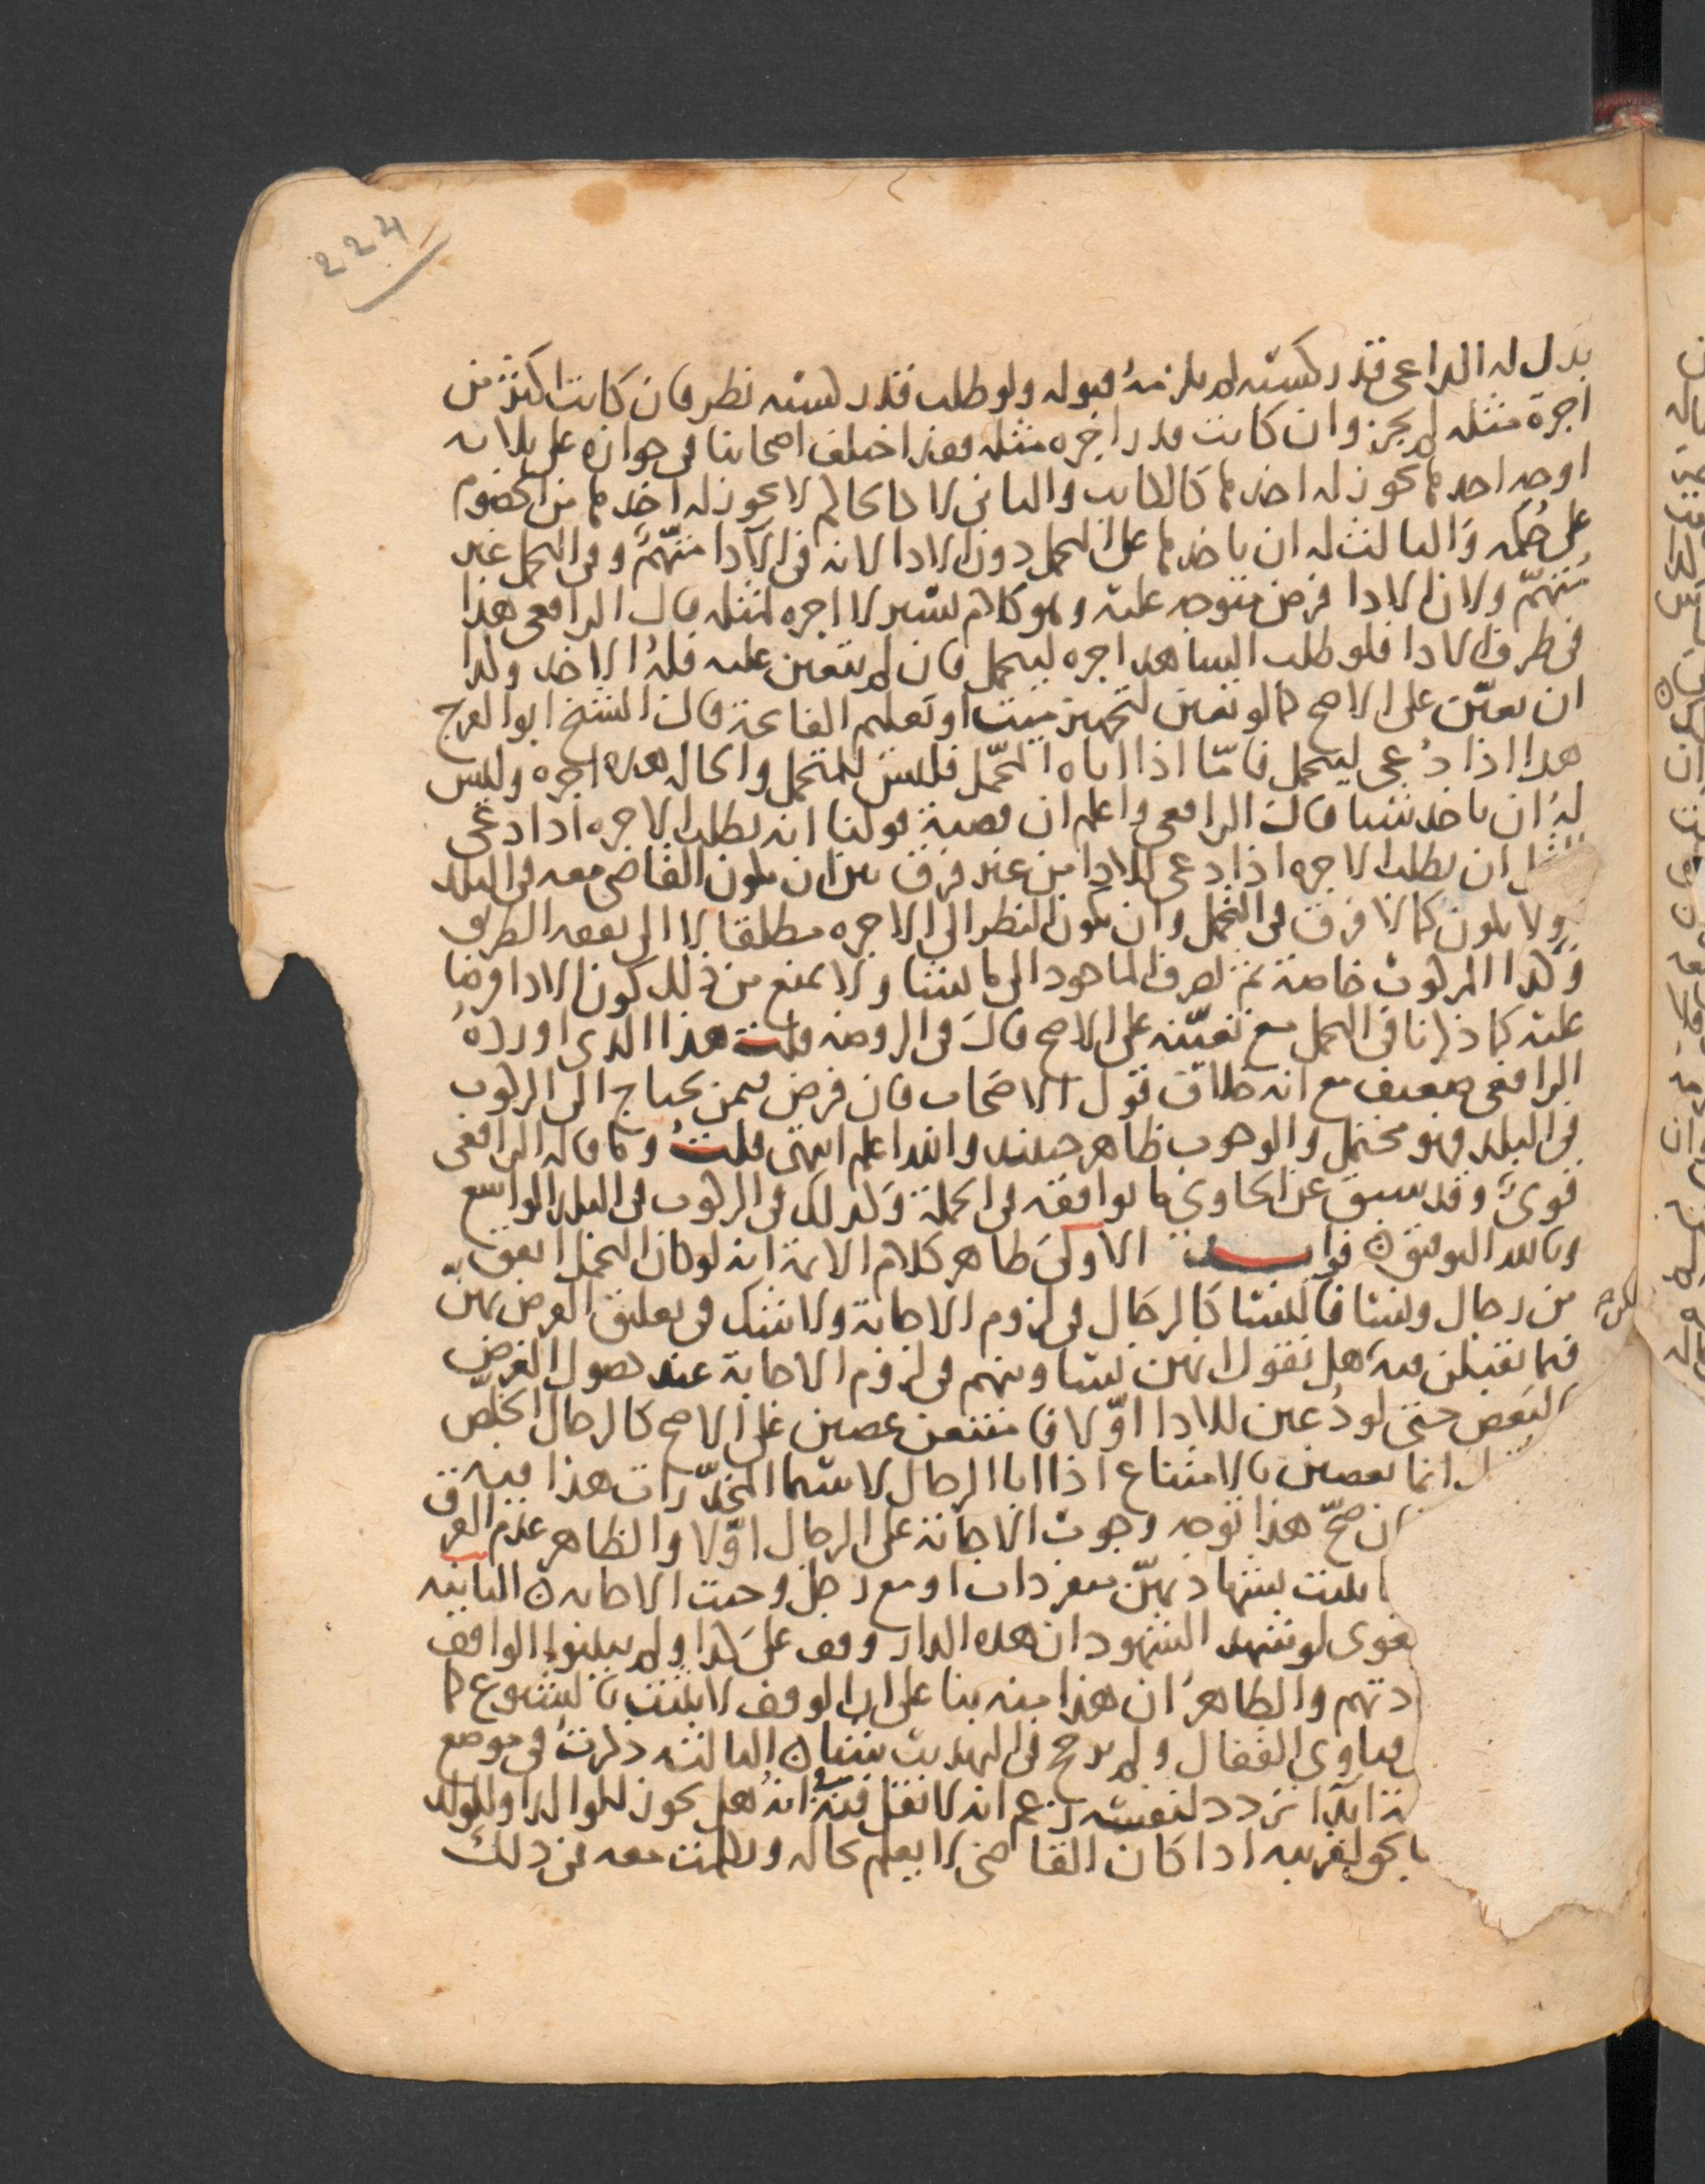 224
بذل له الداعي قدر كسبه لم يلزمه قبوله ولو طلب قدر كسبه نظر فان كانت اكثر من
اجرة مثله لم يجز وان كانت قدر اجره مثله فقد اختلف اصحابنا في جوازه على ثلاثه
اوجه احدها يجوز له اخذها كالكاتب والثاني لا كالحاكم لا يجوز له اخذها من الخصوم
على حكمه والثالث له ان ياخذها على التحمل دون الادا لانه في الادا متهم وفي التحمل غير
متهم ولان الادا فرض متوجه عليه وهو كلام يسير لا اجره لمثله قال الرافعي هذا
في طرف الادا فلو طلب الشاهد اجره ليتحمل فان لم يتعين عليه فله الاخذ ولذا
ان تعين على الاصح كما لو تعين لتجهيز ميت او تعليم الفاتحة قال الشيخ ابو الفرج
هذا اذا دعي ليتحمل فاما اذا اتاه التحمل فليس للتحمل والحاله هذه اجره وليس
له ان ياخذ شيا قال الرافعي واعلم ان قضية قولنا انه يطلب الاجره اذا دعي
ان يطلب الاجره اذا دعي للادا من غير فرق بين ان يكون القاضي معه في البلد
ولا يكون كما لا فرق في التحمل وان يكون النظر الى الاجره مطلقا لا الى نفقه الطريق
وكذا المركوب خاصة ثم يصرف الماخوذ الى ما يشا ولا يمنع من ذلك كون الادا فرضا
عليه كما ذكرنا في التحمل مع تعينه على الاصح قال في الروضه قلت هذا الذي اورده
الرافعي ضعيف مع انه خلاف قول الاصحاب فان فرض فيمن يحتاج الى الركوب
في البلد فهو محتمل والوجوب ظاهر حينئذ والله اعلم انتهى قلت وما قاله الرافعي
قوي وقد سبق عن الحاوي ما يوافقه في الجملة وكذلك في الركوب في البلد الواسع
وبالله التوفيق فوايد الاولى ظاهر كلام الائمة انه لو كان التحمل اتفق
من رجال ونسا فالنسا كالرجال في لزوم الاجابة ولا شك في تعليق الفرض بهن
فيما تقبلن فيه هل نقول انهن يساوينهم في لزوم الاجابة عند حصول الغرض
البعض حتى لو دعين للادا اولا فامتنعن عصين على الاصح كالرجال الخلص
انما يعصين بالامتناع اذا ابا الرجال لا سيما المخدرات هذا فيه
ان صح هذا توجه وجوب الاجابة على الرجال اولا والظاهر عدم الفرق
بشهادتهن منفردات او مع رجل وجبت الاجابه الثانيه
لو شهد الشهود ان هذه الدار وقف على كذا ولم يبينوا الواقف
دتهم والظاهر ان هذا منه بنا على ان الوقف لا يثبت بالشيوع كما
فتاوي القفال ولم يرجح في التهذيب شيا الثالثه ذكرت في موضع
تردد لنفسه زعم انه لا نقل فيه انه هل يجوز للوالد او للولد
لقريبه اذا كان القاضي لا يعلم بحاله وبحثت معه في ذلك